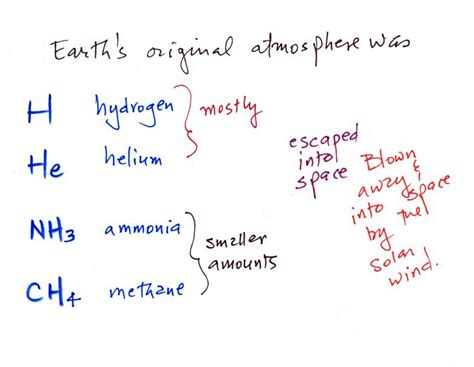 Earth's original atmosphere was
H hydrogen
mostly
He helium
NH3 ammonia
smaller
amounts
CH4 methane
escaped
into
space
Blown
away &
into space
by the
solar
wind.